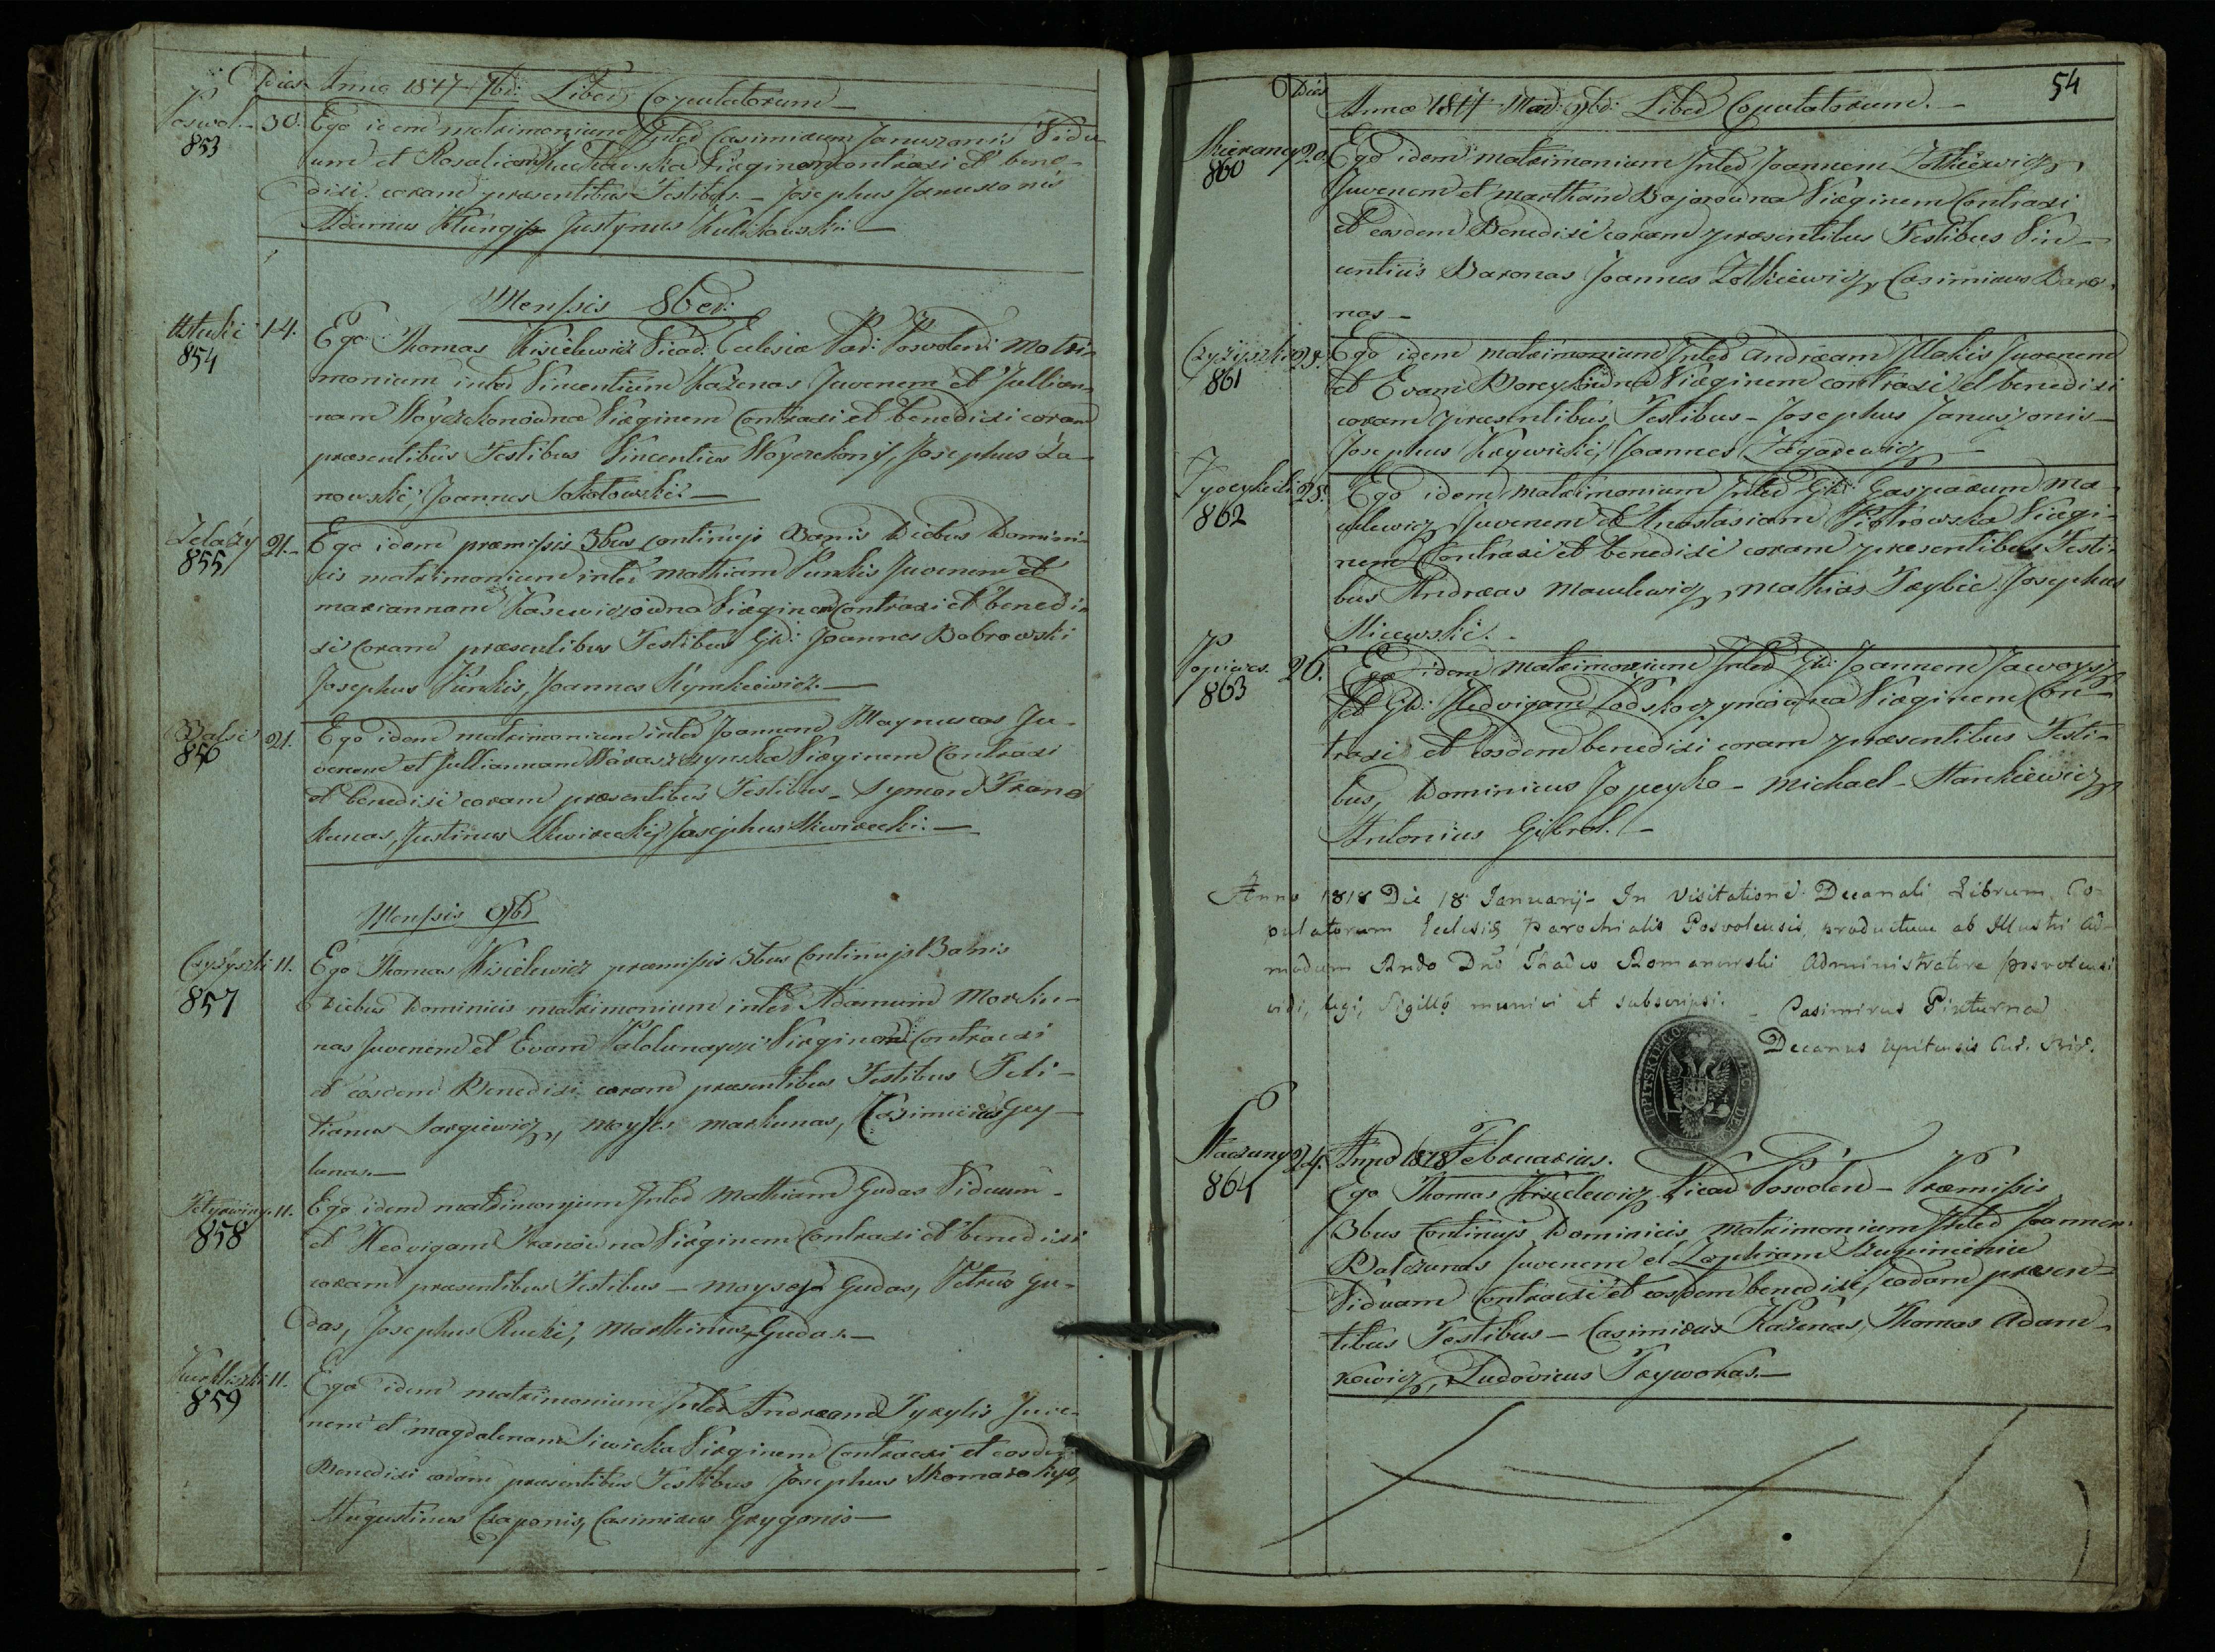 Dies Anno 1817 7bri Liber Copulatorum
Poswol. 30.
853
Ego idem matrimonium Inter Casimirum Januszanis Vidu-
um et Rosaliam Virginem contraxi et bene-
dixi coram praesentibus Testibus. – Josephus Januszonis
Adamus Justynus Kulikowski. –
Mensis 8bris
14.
854
Ego Thomas Kisielewicz Vicar: Eclesiæ Par: Posvolen: Matri-
monium inter Vincentium Każenas Juvenem et Jullian-
nam Woyczekonowna Virginem Contraxi et benedixi coram
praesentibus Testibus Vincentius Woyczekonis, Josephus Za-
nowski, Joannes Sokołowski. –
21.
855
Ego idem præmissis 3bus continuis Banis Diebus Domini-
cis matrimonium inter Mathiam Kunkis Juvenem et
mariannam Kasewiczowna Virginem Contraxi et bened i-
xi Coram praesentibus Testibus GD: Joannes Dobrowski
Josephus Kunkis, Joannes Rymkiewicz. –
21.
856
Ego idem matrimonium inter Joannem Maynuscas Ju-
venem et Julliannam Virginem Contraxi
et benedixi coram praesentibus Testibus – Symon Frano
kunas, Justinus Skwirecki, Josephus Skwirecki. –
Mensis 9bris
Czyżyszki 11.
857
Ego Thomas Kisielewicz præmissis 3bus Continuis Banis
Diebus Dominicis matrimonium inter Adamum Morku-
nas Juvenem et Evam Virginem Contraxi
et eosdem Benedixi coram praesentibus Testibus Feli-
tianus Sargiewicz, Moyses markunas, Casimirus Gey-
lunas. –
11.
858
Ego idem matrimonium Inter Mathiam Gudas Viduum –
et Hedvigam Virginem Contraxi et benedixi
coram praesentibus Testibus – Moyses Gudas, Petrus Gu-
das, Josephus Rucki, Marthinus Gudas. –
11.
859
Ego idem matrimonium Inter Andream Tyrylis Juve-
nem et magdalenam Siwicka Virginem Contraxi et eosdem
Benedixi coram praesentibus Testibus Josephus
Augustinus Czaponis, Casimirus Grygonis –
54
Dies Anno 1817 9bri Liber Copulatorum. –
20.
860
Ego idem matrimonium Inter Joannem Zołkiewicz
Juvenem et Martham Bojarowna Virginem Contraxi
et eosdem Benedixi coram praesentibus Testibus Vin-
centius Baronas Joannes Zołkiewicz, Casimirus Baro-
nas –
Czyżyszki 25.
861
Ego idem matrimonium Inter Andream Makis Juvenem
et Evam Virginem contraxi et benedixi
coram praesentibus Testibus – Josephus Januszonis –
Josephus Krywicki, Joannes –
25.
862
Ego idem matrimonium Inter GD: Gasparum Ma-
culewicz Juvenem et Anastasiam Piotrowska Virgi-
nem Contraxi et benedixi coram praesentibus Testi-
bus Andreas Maculewicz, Mathias Josephus
Micewski. –
26.
863
Ego idem Matrimonium Inter GD: Joannem Jawoysz
et GD: Hedvigam Virginem Con-
traxi et Eosdem benedixi coram praesentibus Testi-
bus, Dominicus Jopeyko – Michael – Stankiewicz
Antonius –
Anno 1818 Die 18 Januarij – In Visitatione Decanali Librum Co-
pulatorum Eclesiæ Parochialis Posvolensis, productum ab Illustri ad-
modum Rndo Dno Thadeo Romanowski Administratore Posvolensi
vidi, legi, Sigillo munivi et subscripsi. – Casimirus Pixturna
Decanus Upitensis Cur.
UPITSKIEGO
24.
864
Anno 1818 Februarius.
Ego Thomas Kisielewicz Vicar Posvolen – Præmissis
3bus Continuis Dominicis Matrimonium Inter Joannem
Balczunas Juvenem et Zophiam
Viduam Contraxi et eosdem benedixi, coram praesen-
tibus Testibus – Casimirus Każenas, Thomas Adam-
kowicz, Ludovicus Trywokas. –